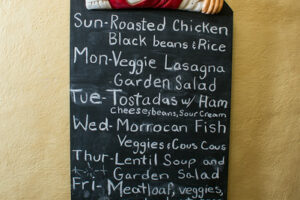 Sun-Roasted Chicken
Black beans & Rice
Mon-Veggie Lasagna
Garden Salad
Tue-Tostadas w/ Ham
cheese, beans, Sour Cream
Wed-Morrocan Fish
Veggies & Cous Caus
Thur-Lentil Soup and
Garden Salad
Fri-Meatloaf, veggies,